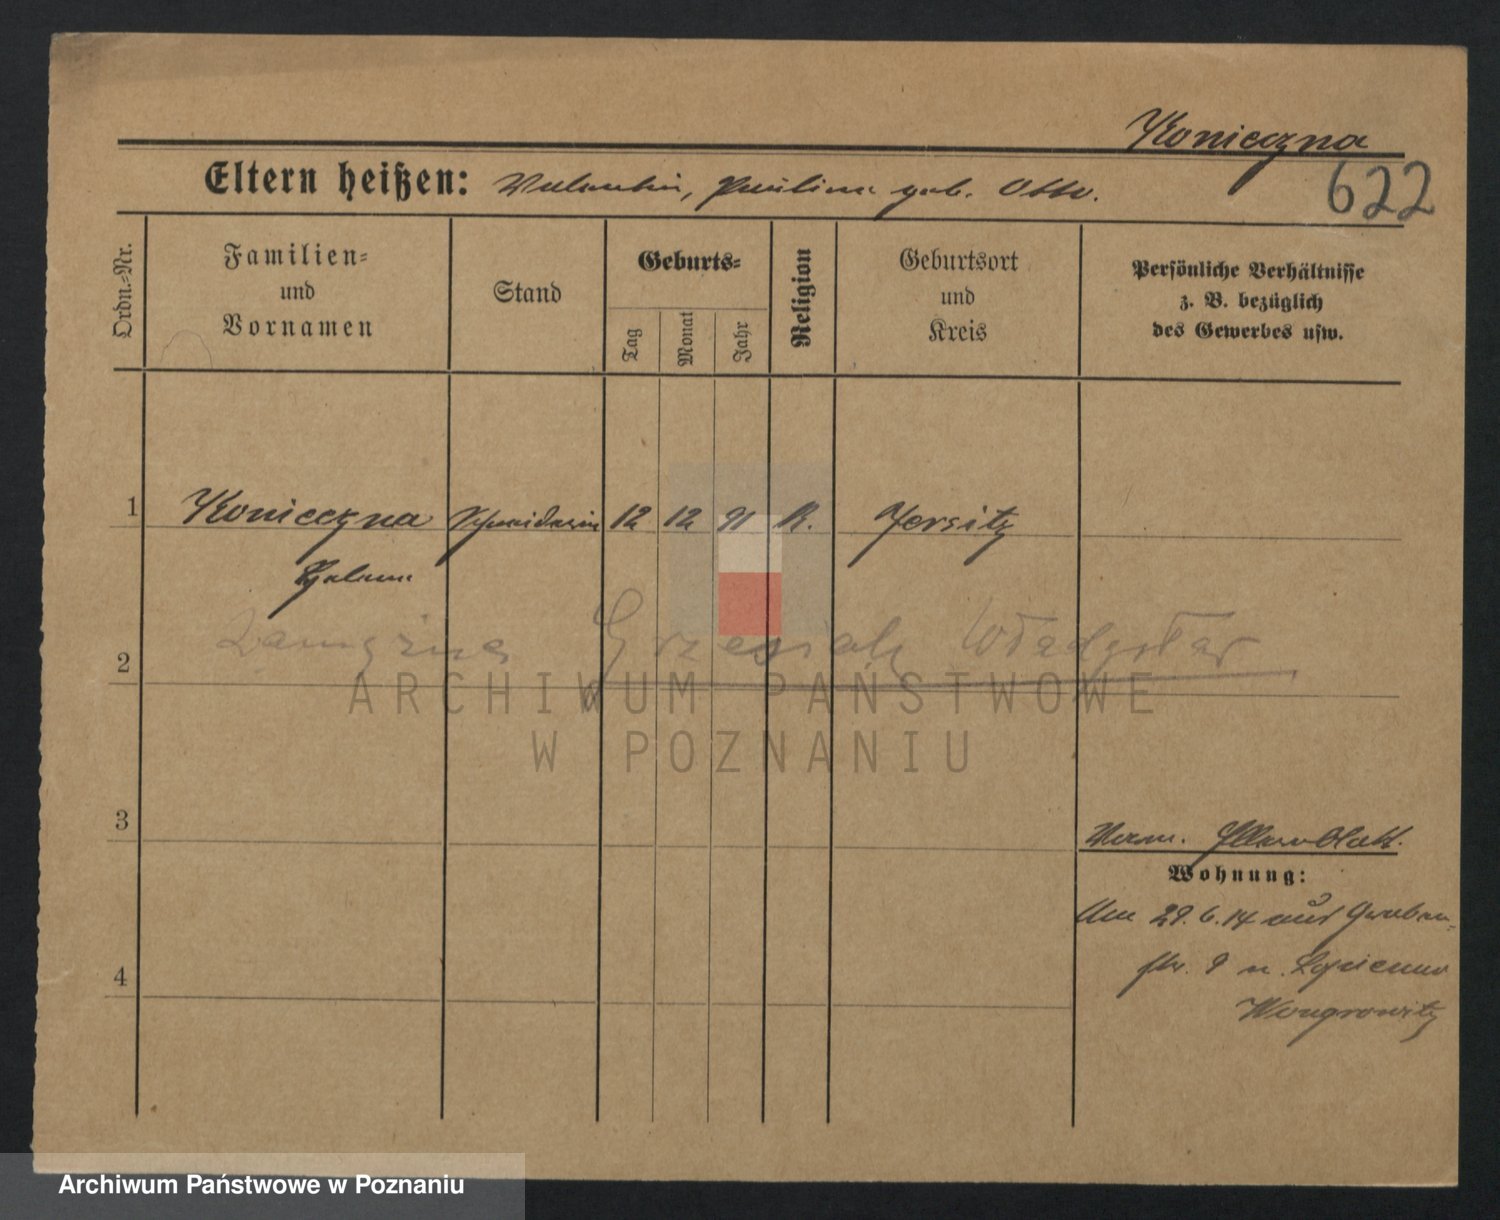 Konieczna
Eltern heißen: Valentin, Paulina geb. Otto.
622
Ordn.-Nr.
Familien-
und
Vornamen
Stand
Geburts-
Tag
Monat
Jahr
Religion
Geburtsort
und
Kreis
Persönliche Verhältnisse
z. B. bezüglich
des Gewerbes usw.
1 Konieczna Schneiderin 12 12 91 K. Jersitz
Helena
zamężna Grzesiak Władysław
2
ARCHIWUM PAŃSTWOWE
W POZNANIU
3
Verm. Elternblatt.
Wohnung:
Am 29.6.14 auf Graben-
str. 9 n.
4
Wongrowitz
Archiwum Państwowe w Poznaniu